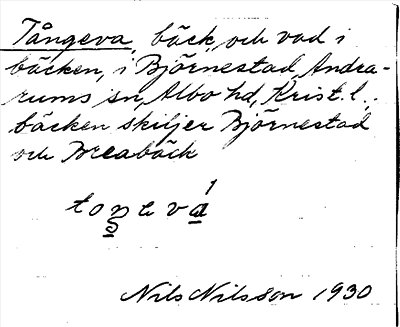 Tångeva, bäck och vad i
bäcken, i Björnestad, Andra-
rums sn, Albo hd, Krist. l.,
bäcken skiljer Björnestad
och Breabäck
Nils Nilsson 1930